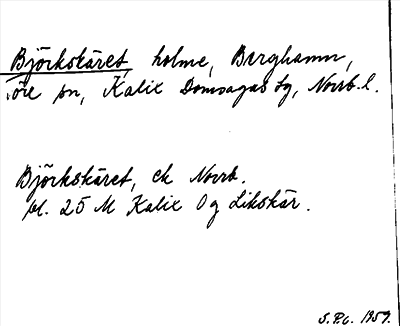 Björkskäret, holme, Berghamn,
öre sn, Kalix Domsagas tg, Norrb. l.
Björkskäret, ek Norrb.
bl. 25 M Kalix Og Likskär.
S.P.G. 1959.